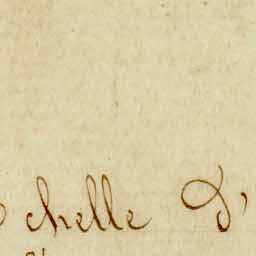 chelle d'